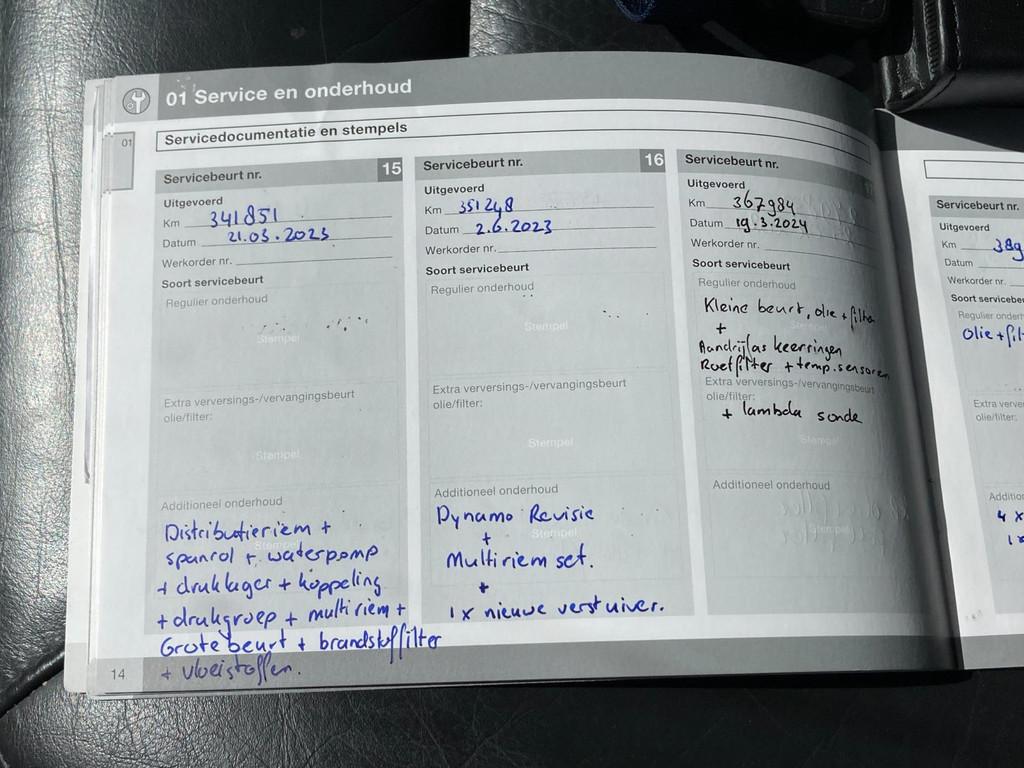 01 Service en onderhoud
01
Servicedocumentatie en stempels
Servicebeurt nr. 15
Uitgevoerd
Km 341851
Datum 21.03.2023
Werkorder nr.
Soort servicebeurt
Regulier onderhoud
Stempel
Extra verversings-/vervangingsbeurt
olie/filter:
Stempel
Additioneel onderhoud
Distributieriem +
spanrol + waterpomp
+ druklager + koppeling
+ drukgroep + multiriem +
Grote beurt + brandstoffilter
+ vloeistoffen.
14
Servicebeurt nr. 16
Uitgevoerd
Km 351248
Datum 2.6.2023
Werkorder nr.
Soort servicebeurt
Regulier onderhoud
Stempel
Extra verversings-/vervangingsbeurt
olie/filter:
Stempel
Additioneel onderhoud
Dynamo Revisie
Stempel
+
Multiriem set.
+
1x nieuwe verstuiver.
Servicebeurt nr.
Uitgevoerd
Km 367984
Datum 19.3.2024
Werkorder nr.
Soort servicebeurt
Regulier onderhoud
Kleine beurt, olie + filter
+
Aandrijfas keerringen
Roetfilter + temp. sensoren
Extra verversings-/vervangingsbeurt
olie/filter:
+ lambda sonde
Stempel
Additioneel onderhoud
Stempel
Servicebeurt nr.
Uitgevoerd
Km 389
Datum
Werkorder nr.
Soort servicebe
Regulier onderh
Olie + filt
Extra verve
olie/filter:
Additio
4 x
1x